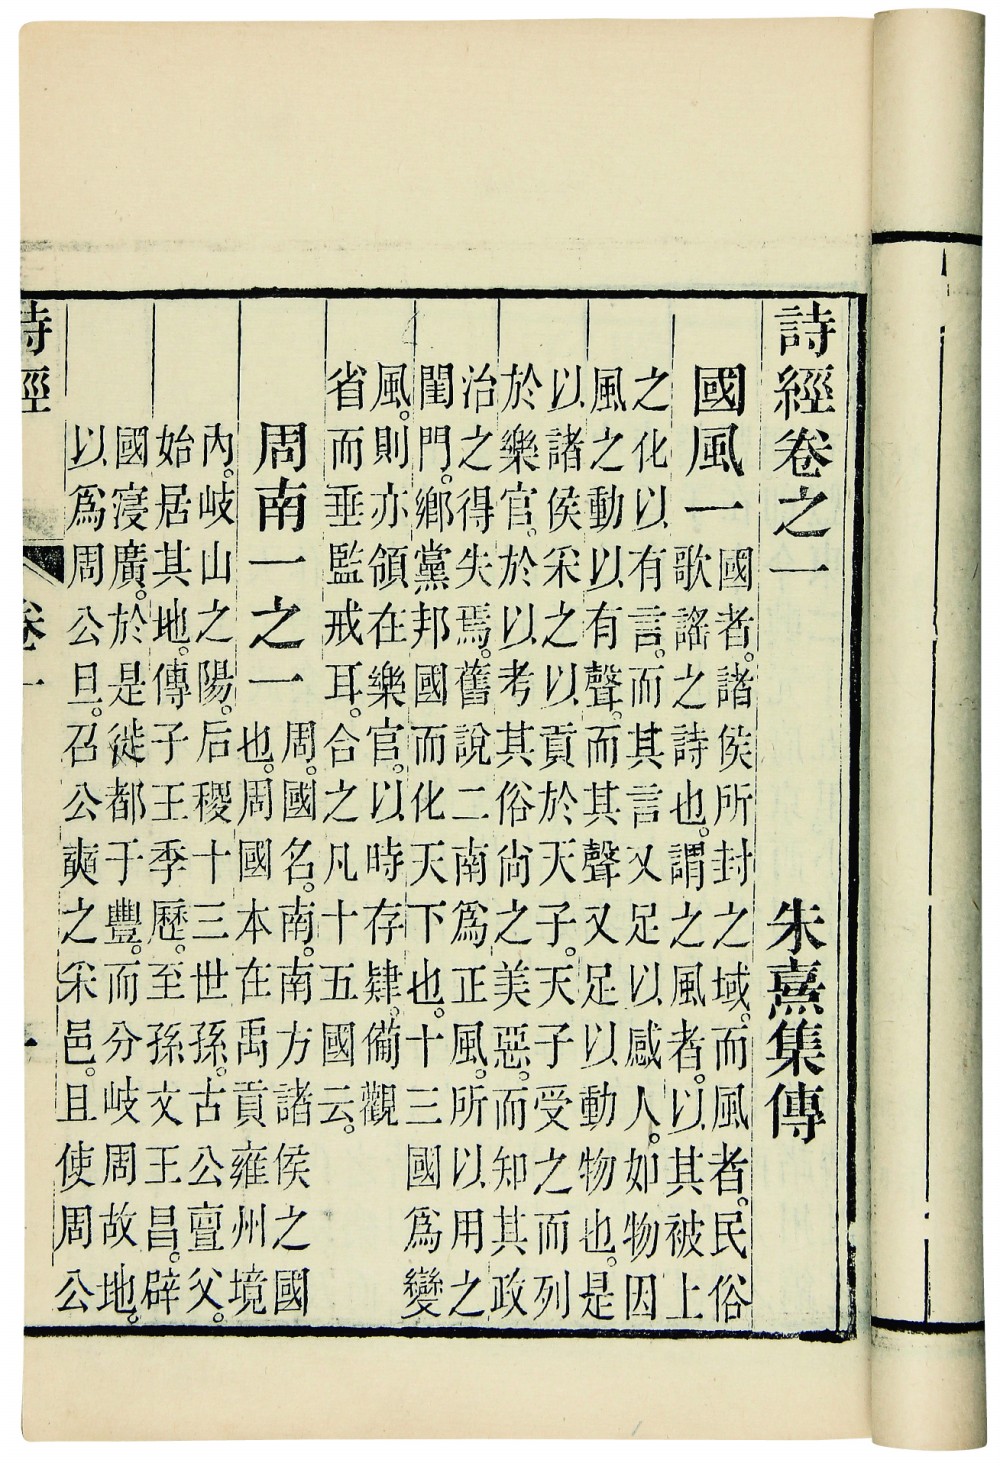 詩經卷之一　朱熹集傳
國風一
國者。諸侯所封之域。而風者。民俗
歌謠之詩也。謂之風者。以其被上
之化以有言。而其言又足以感人。如物因
風之動以有聲。而其聲又足以動物也。是
以諸侯采之以貢於天子。天子受之而列
於樂官。於以考其俗尚之美惡。而知其政
治之得失焉。舊說二南爲正風。所以用之
閨門。鄉黨邦國而化天下也。十三國爲變
風。則亦領在樂官。以時存肄。備觀
省而垂監戒耳。合之凡十五國云。
周南一之一
周。國名。南。南方諸侯之國
也。周國本在禹貢雍州境
內。岐山之陽。后稷十三世孫。古公亶父。
始居其地。傳子王季歷。至孫文王昌。辟
國寖廣。於是徙都于豐。而分岐周故地。
以爲周公旦。召公奭之采邑。且使周公
詩經　卷一